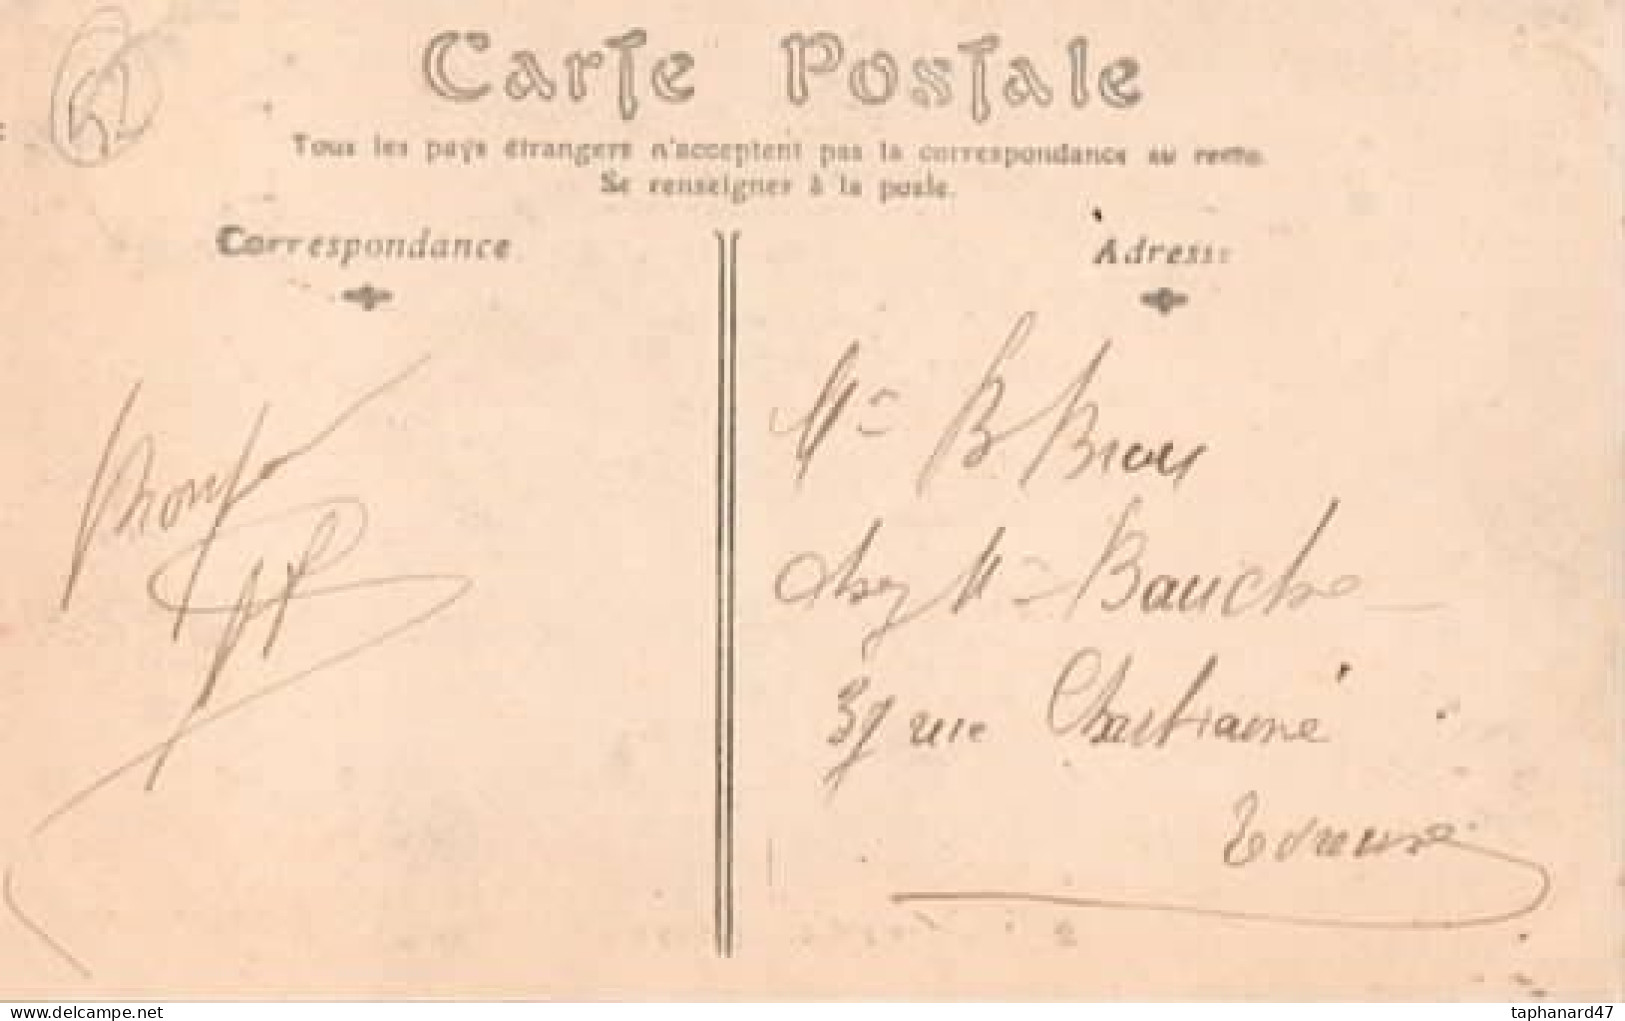 62
Carte Postale
Tous les pays étrangers n'acceptent pas la correspondance au recto.
Se renseigner à la poste.
Correspondance
Adresse
Mme B
chez Mme Bauche
37 rue Chartraine
Evreux
delcampe.net
taphanard47